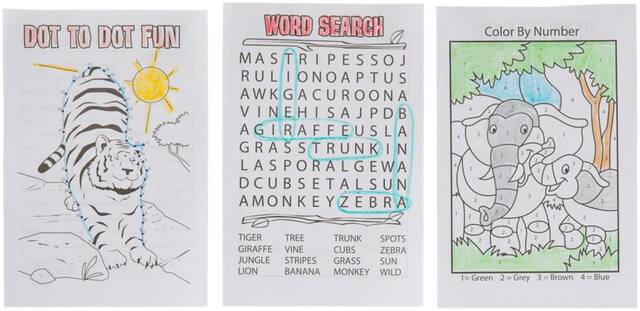 DOT TO DOT FUN
WORD SEARCH
MASTRIPESSOJ
RULIONOAPTUS
AWKGACUROONA
VINEHISAJPDB
AGIRAFFEUSLA
GRASSTRUNKIN
LASPORALGEWA
DCUBSETALSUN
AMONKEYZEBRA
TIGER TREE TRUNK SPOTS
GIRAFFE VINE CUBS ZEBRA
JUNGLE STRIPES GRASS SUN
LION BANANA MONKEY WILD
Color By Number
1=Green 2=Grey 3=Brown 4=Blue